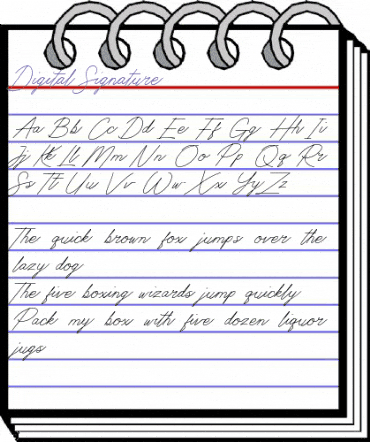 Digital Signature
Aa Bb Cc Dd Ee Ff Gg Hh Ii
Jj Kk Ll Mm Nn Oo Pp Qq Rr
Ss Tt Uu Vv Ww Xx Yy Zz
The quick brown fox jumps over the
lazy dog
The five boxing wizards jump quickly
Pack my box with five dozen liquor
jugs